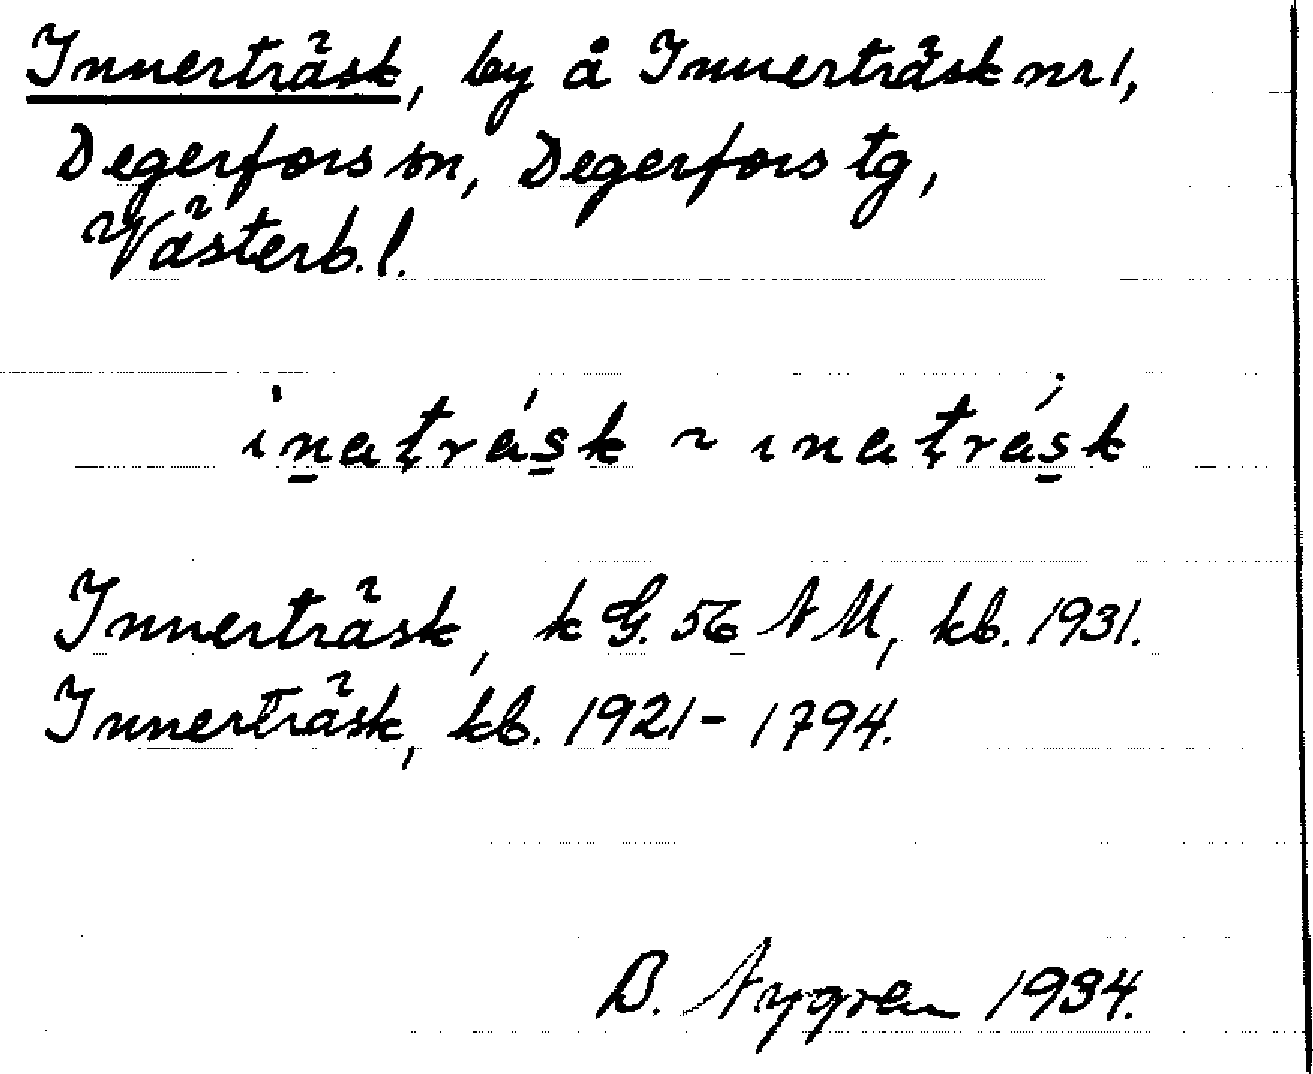 Innerträsk, by å Innerträsk nr 1,
Degerfors sn, Degerfors tg,
Västerb. l.
ınaträsk ~ ınaträsk
Innerträsk, k G. 56 NM, kb. 1931.
Innerträsk, kb. 1921- 1794.
B. Nygren 1934.